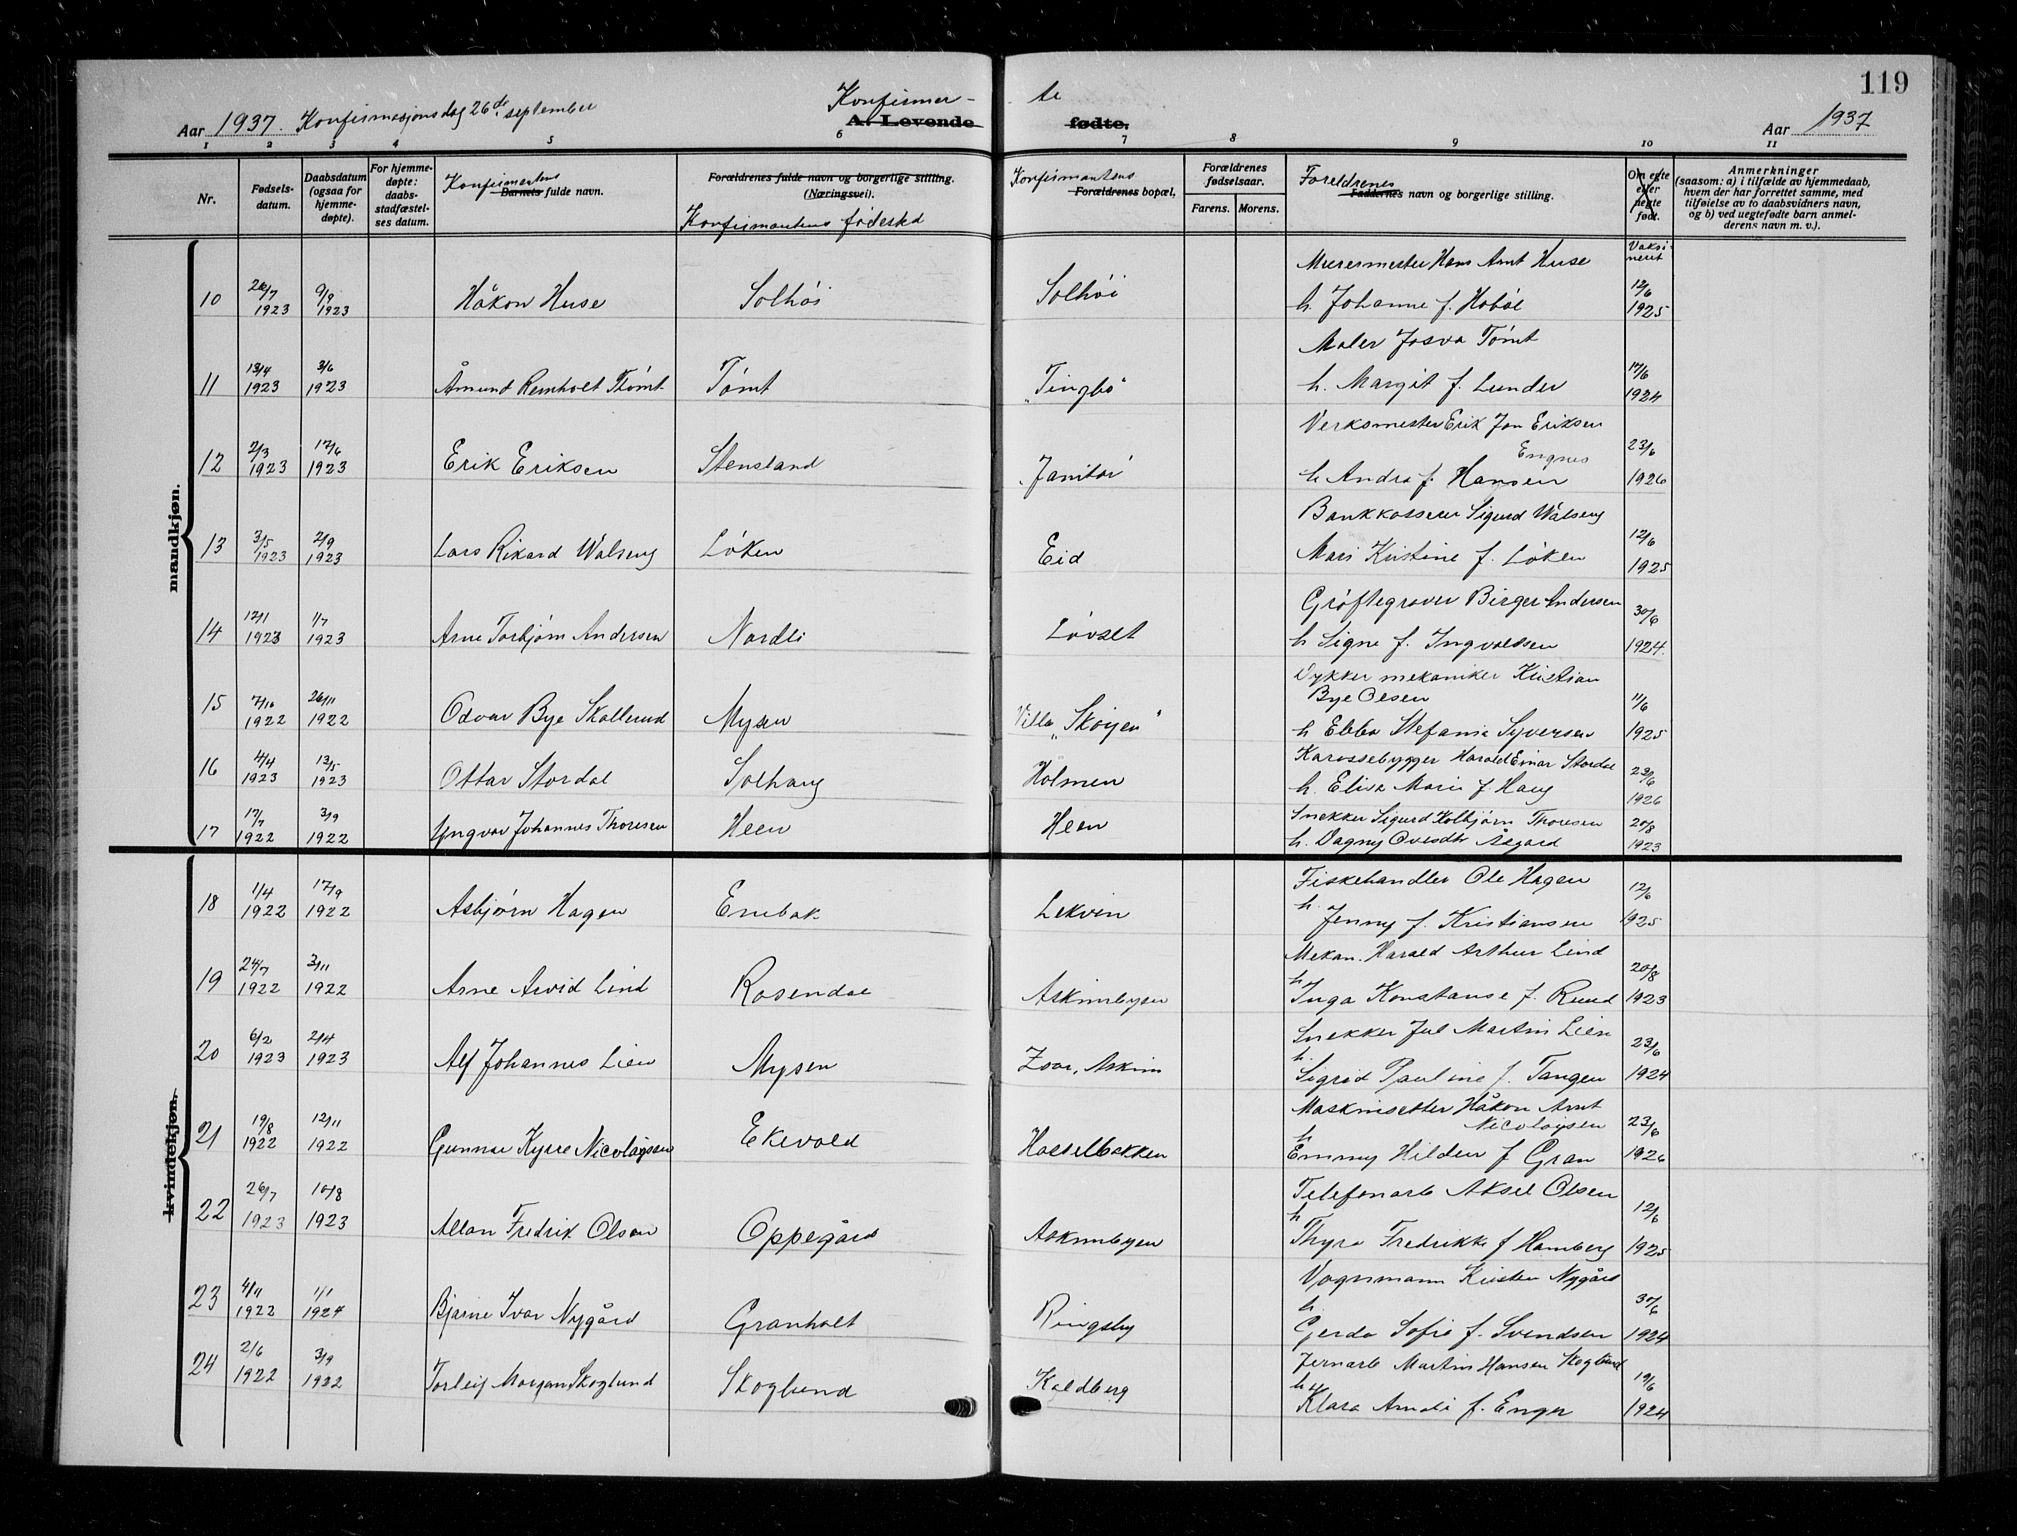 119
Aar 1937. Konfirmasjonsdag 26de september
Konfirmer - te
A. Levende fødte.
Aar 1937
1 2 3 4 5 6 7 8 9 10 11
Nr.
Fødsels-
datum.
Daabsdatum
(ogsaa for
hjemme-
døpte).
For hjemme-
døpte:
daabs-
stadfæstel-
ses datum.
Konfirmantens
Barnets fulde navn.
Forældrenes fulde navn og borgerlige stilling.
(Næringsvei).
Konfirmantens fødested
Konfirmantens
Forældrenes bopæl.
Forældrenes
fødselsaar.
Farens. Morens.
Foreldrenes
Faddernes navn og borgerlige stilling.
Om egte
eller
uegte
født.
Anmerkninger
(saasom: a) i tilfælde av hjemmedaab,
hvem der har forrettet samme, med
tilføielse av to daabsvidners navn,
og b) ved uegtefødte barn anmel-
derens navn m. v.).
mandkjøn.
Vaksi-
nert
Murermester Hans Arnt Huse
10 26/7 1923 9/9 1923 Håkon Huse Solhøi Solhøi h. Johanne f. Hobøl 12/6 1925
Maler Josva Tømt
11 13/4 1923 3/6 1923 Åmund Remholt Tømt Tømt "Tingbo" h. Margit f. Lunder 17/6 1924
Verksmester Erik Jon Eriksen
Engnes
12 2/3 1923 17/6 1923 Erik Eriksen Stensland "Janitor" h Andra f. Hansen 23/6 1926
Bankkasserer Sigurd Walseng
13 3/5 1923 2/9 1923 Lars Rikard Walseng Løken Eid Mari Kristine f. Løken 12/6 1925
Grøftegraver Birger Andersen
14 12/1 1923 1/7 1923 Arne Torbjørn Andersen Nordli Løvset h Signe f. Ingvaldsen 30/6 1924.
Dykker mekaniker Kristian
Bye Olsen
15 7/10 1922 26/11 1922 Odvar Bye Skollerud Mysen Villa "Skøyen" h Ebba Stefanie Syversen 11/6 1925
Karossebygger Harald Einar Stordal
16 4/4 1923 13/5 1923 Ottar Stordal Solhaug Holmen h. Elise Marie f. Haug 23/6 1926
Snekker Sigurd Kolbjørn Thoresen
17 17/7 1922 3/9 1922 Yngvar Johannes Thoresen Heen Heen h. Dagny Ovesdtr Åsgård 20/8 1923
kvindekjøn.
Fiskehandler Ole Hagen
18 1/4 1922 17/9 1922 Asbjørn Hagen Enebak Lekvin h. Jenny f. Kristiansen 12/6 1925
Mekan. Harald Arthur Lind
19 24/7 1922 3/11 1922 Arne Arvid Lind Rosendal Askimbyen h Inga Konstanse f. Ruud 20/8 1923
Snekker Jul Martin Lien
20 6/2 1923 2/4 1923 Alf Johannes Lien Mysen Zoar, Askim h. Sigrid Pauline f. Tangen 23/6 1924
Maskinsetter Håkon Arnt
Nicolaysen
21 19/8 1922 12/11 1922 Gunnar Kyrre Nicolaysen Ekevold Hasselbakken h Emmy Hilden f Gran 23/6 1926
Telefonarb Aksel Olsen
22 26/7 1923 10/8 1923 Allan Fredrik Olsen Oppegård Askimbyen h Thyra Fredrikke f Hamberg 12/6 1925
Vognmann Kristen Nygård
23 4/11 1922 1/1 1924 Bjarne Ivar Nygård Granholt Ringsby h. Gerda Sofie f. Svendsen 30/6 1924
Jernarb Martin Hansen Skoglund
24 2/6 1922 3/9 1922 Torleif Morgan Skoglund Skoglund Kaldberg h Klara Amalie f. Enger 19/6 1924